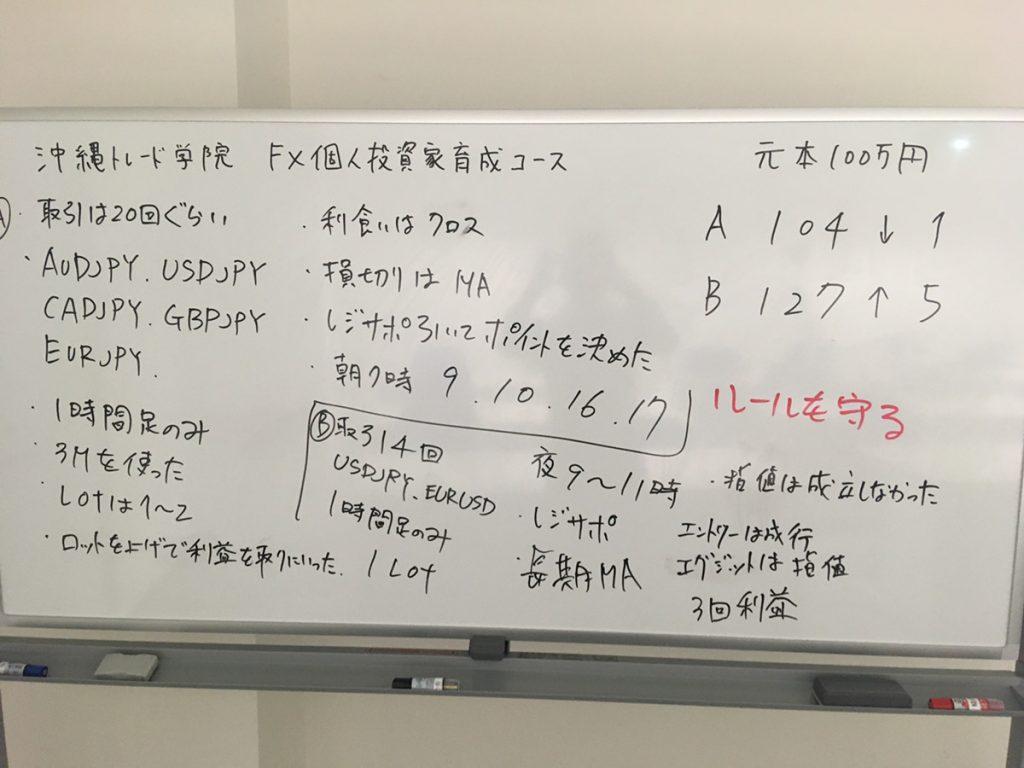 沖縄トレード学院 FX個人投資家育成コース
元本100万円
A 104↓ 1
B 127↑ 5
ルールを守る
Ⓐ・取引は20回ぐらい
・AUDJPY.USDJPY
CADJPY.GBPJPY
EURJPY.
・1時間足のみ
・3Mを使った
・Lotは1〜2
・ロットを上げて利益を取りにいった.
・利食いはクロス
・損切りはMA
・レジサポ引いてポイントを決めた
・朝7時 9.10.16.17
Ⓑ取引4回
USDJPY.EURUSD
1時間足のみ
1Lot
夜9〜11時
・レジサポ
・長期MA
・指値は成立しなかった
エントリーは成行
エグジットは指値
3回利益